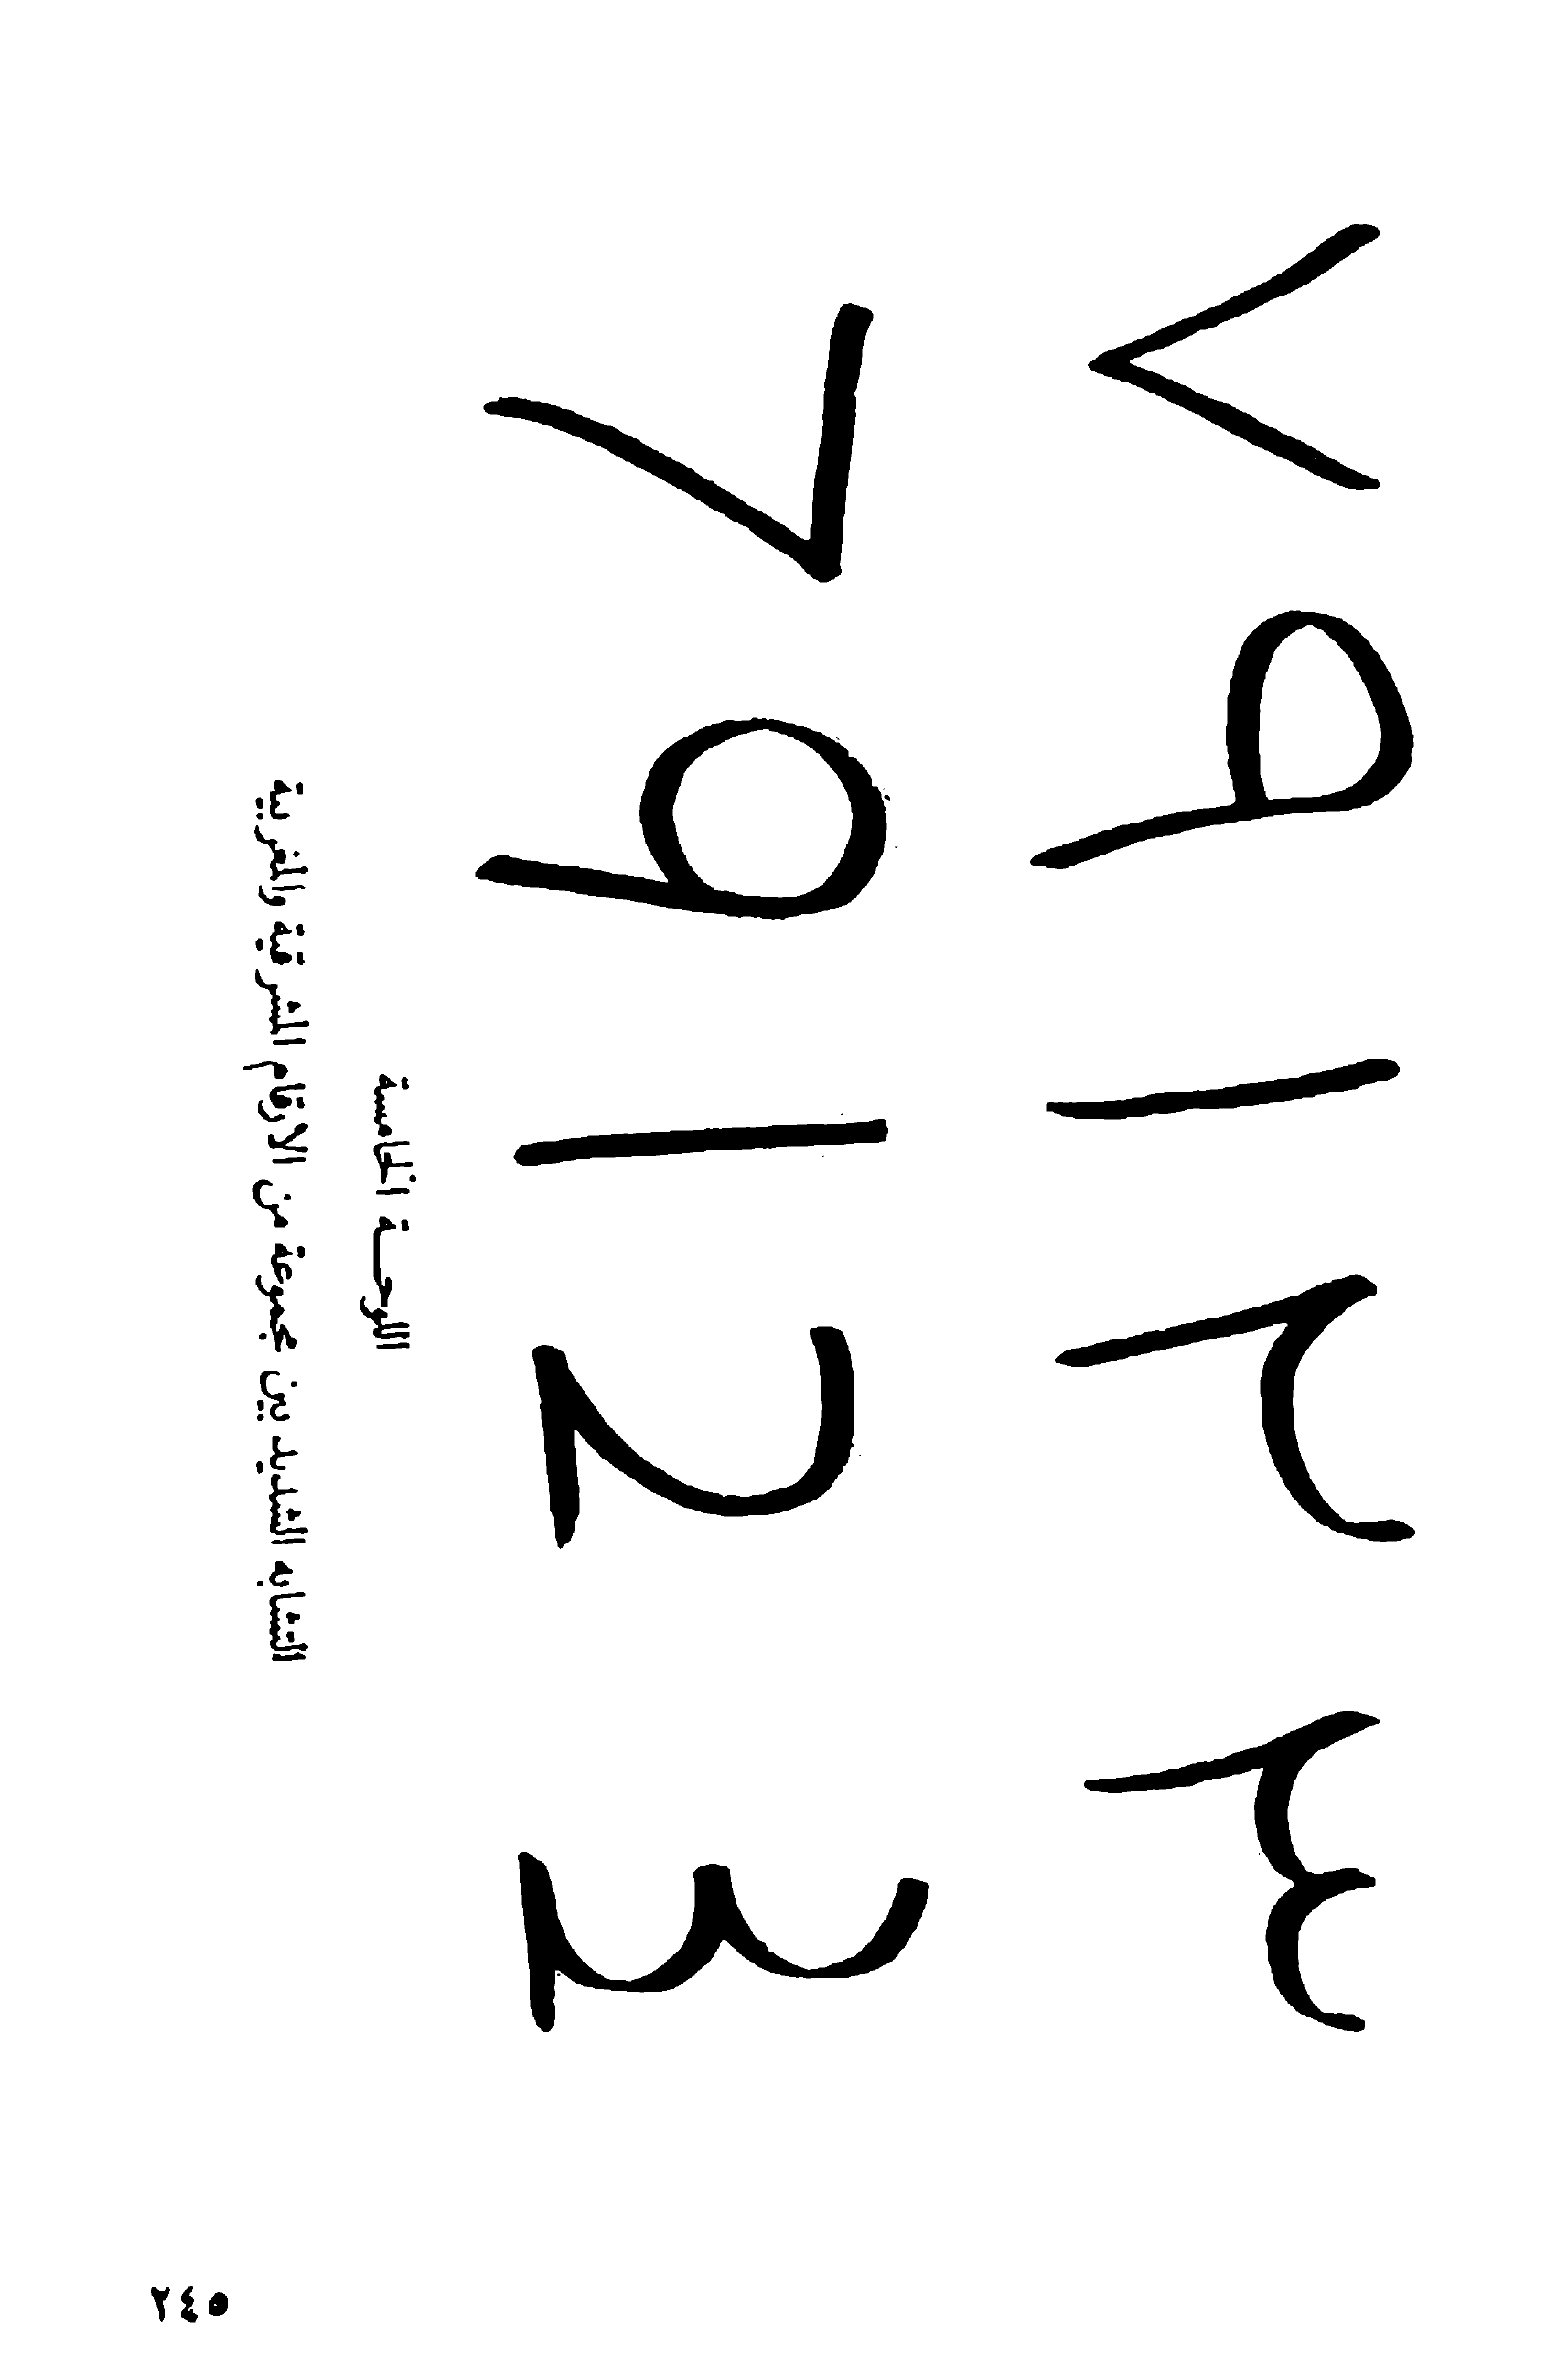 ٧ ٩ ١ ٢ ٣
7 9 1 2 3
اللوحـــة الخامسة
التشابه الشديد بين مجموعة من الارقام الشرقية والغربية
٢٤٥